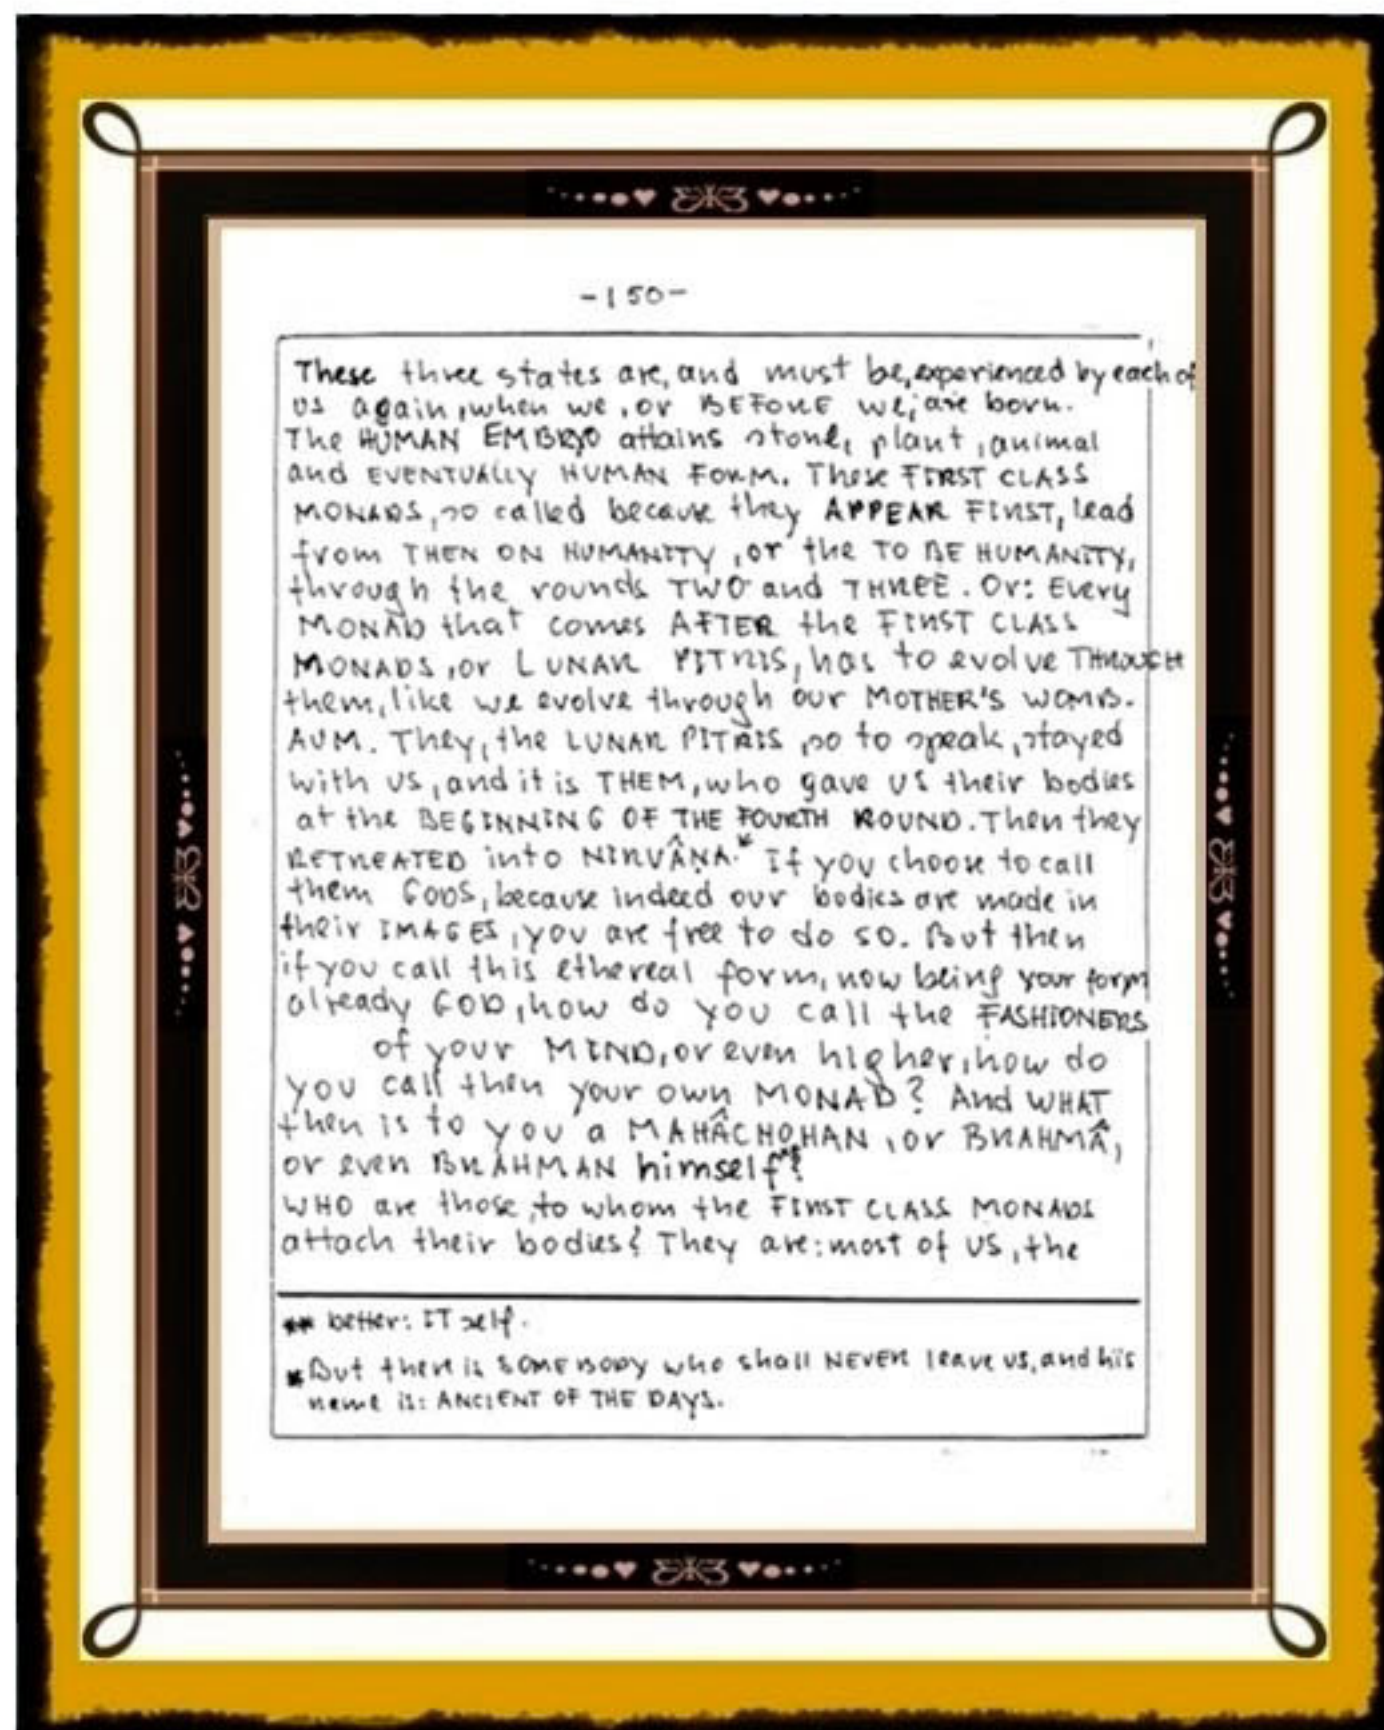 -150-
These three states are, and must be, experienced by each of
us again, when we, or BEFORE we, are born.
The HUMAN EMBRYO attains stone, plant, animal
and EVENTUALLY HUMAN FORM. These FIRST CLASS
MONADS, so called because they APPEAR FIRST, lead
from THEN ON HUMANITY, or the TO BE HUMANITY,
through the rounds TWO and THREE. Or: Every
MONAD that comes AFTER the FIRST CLASS
MONADS, or LUNAR PITRIS, has to evolve THROUGH
them, like we evolve through our MOTHER'S WOMB.
AUM. They, the LUNAR PITRIS, so to speak, stayed
with us, and it is THEM, who gave us their bodies
at the BEGINNING OF THE FOURTH ROUND. Then they
RETREATED into NIRVÂṆA.* If you choose to call
them GODS, because indeed our bodies are made in
their IMAGES, you are free to do so. But then
if you call this ethereal form, now being your form
already GOD, how do you call the FASHIONERS
of your MIND, or even higher, how do
you call then your own MONAD? And WHAT
then is to you a MAHÂCHOHAN, or BRAHMÂ,
or even BRAHMAN himself**?
WHO are those, to whom the FIRST CLASS MONADS
attach their bodies? They are: most of us, the
** better: ITself.
* But there is SOMEBODY who shall NEVER leave us, and his
name is: ANCIENT OF THE DAYS.